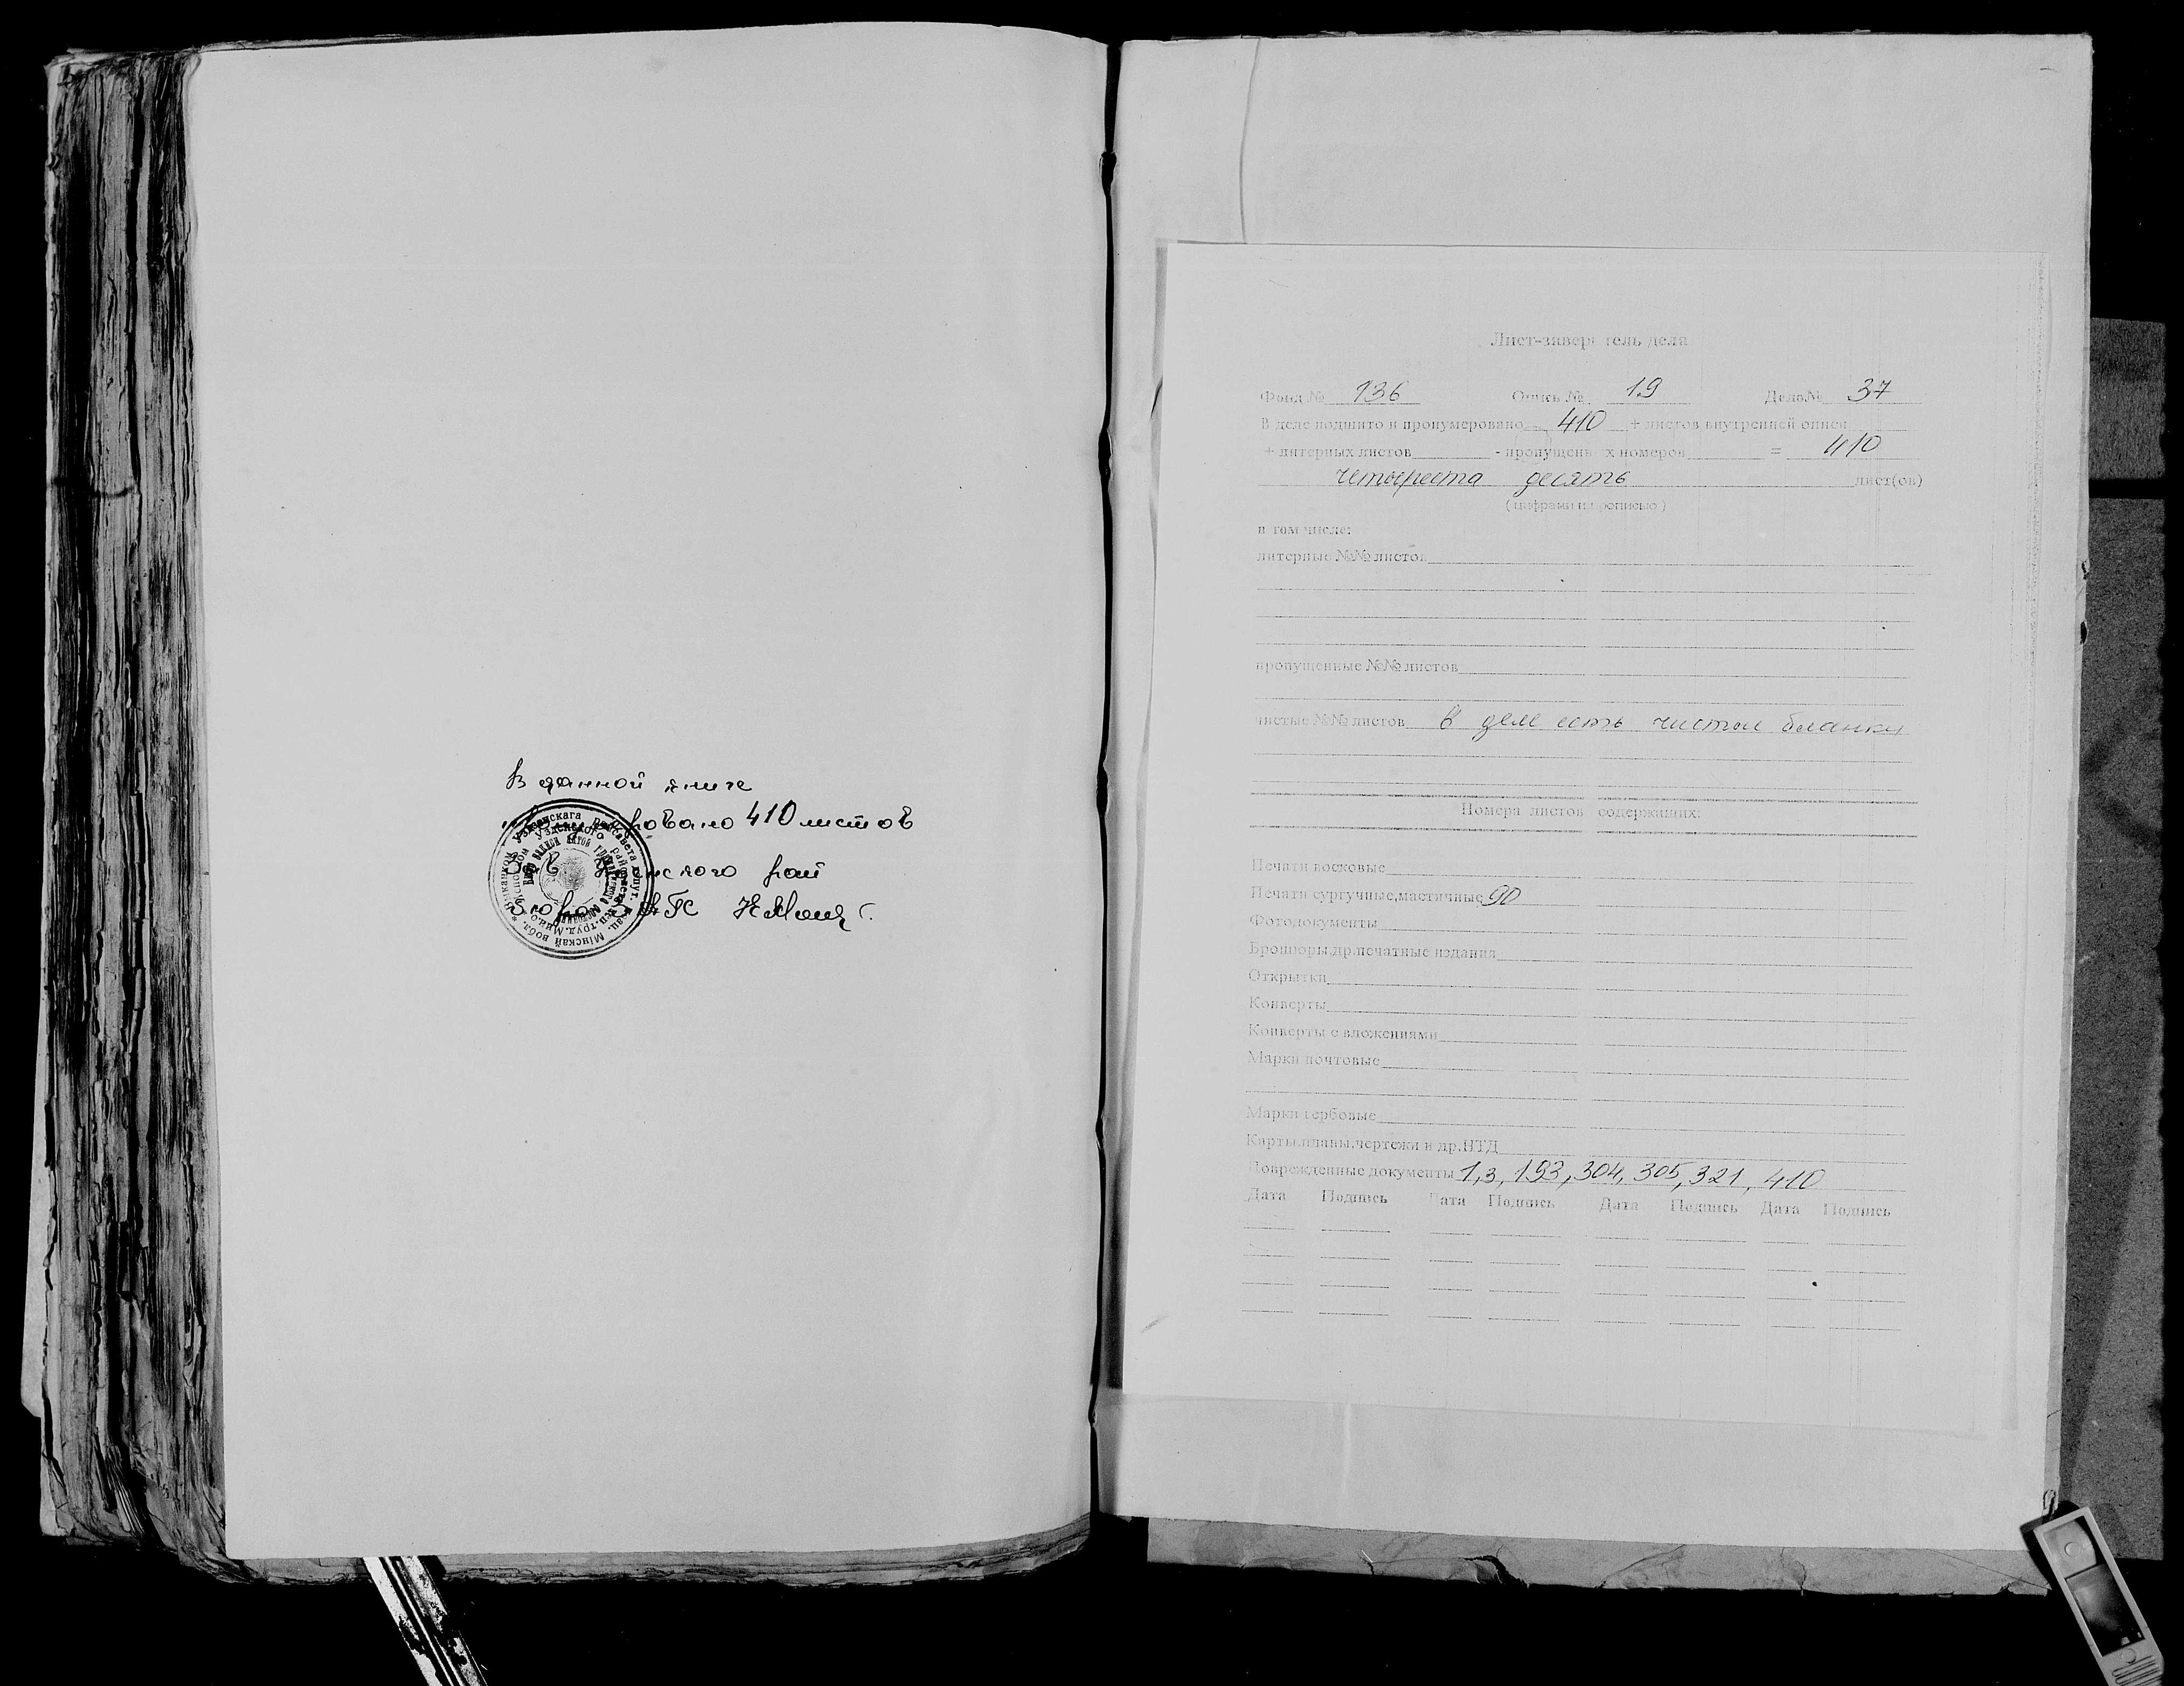 В данной книге
410 листов
рай
ЗАГС
Лист-заверитель дела
Фонд № 136 Опись № 19 Дело № 37
В деле подшито и пронумеровано 410 + листов внутренней описи
+ литерных листов - пропущенных номеров = 410
четыреста десять лист(ов)
(цифрами и прописью)
в том числе:
литерные №№ листов
пропущенные №№ листов
чистые №№ листов в деле есть чистые бланки
Номера листов содержащих:
Печати восковые
Печати сургучные,мастичные 90
Фотодокументы
Брошюры,др.печатные издания
Открытки
Конверты
Конверты с вложениями
Марки почтовые
Марки гербовые
Карты,планы,чертежи и др.НТД
Поврежденные документы 1,3,193,304,305,321,410
Дата Подпись Дата Подпись Дата Подпись Дата Подпись